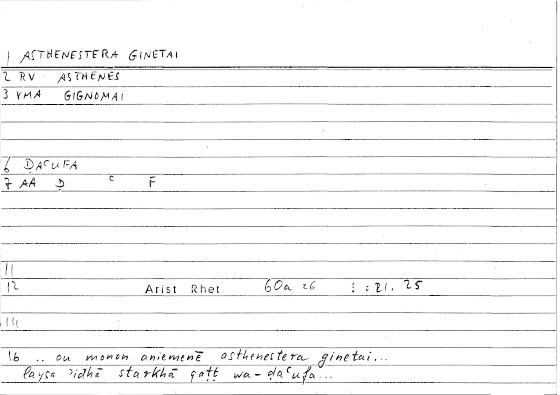 1 ASTHENESTERA GINETAI
2 RV ASTHENES
3 VMA GIGNOMAI
6 ḌAᶜUFA
7 AA Ḍ ᶜ F
11
12 Arist Rhet 60a 26 : 21. 25
14
16 .. ou monon aniemenē asthenestera ginetai...
laysa ʾidhā starkhā qaṭṭ wa-ḍaᶜufa...